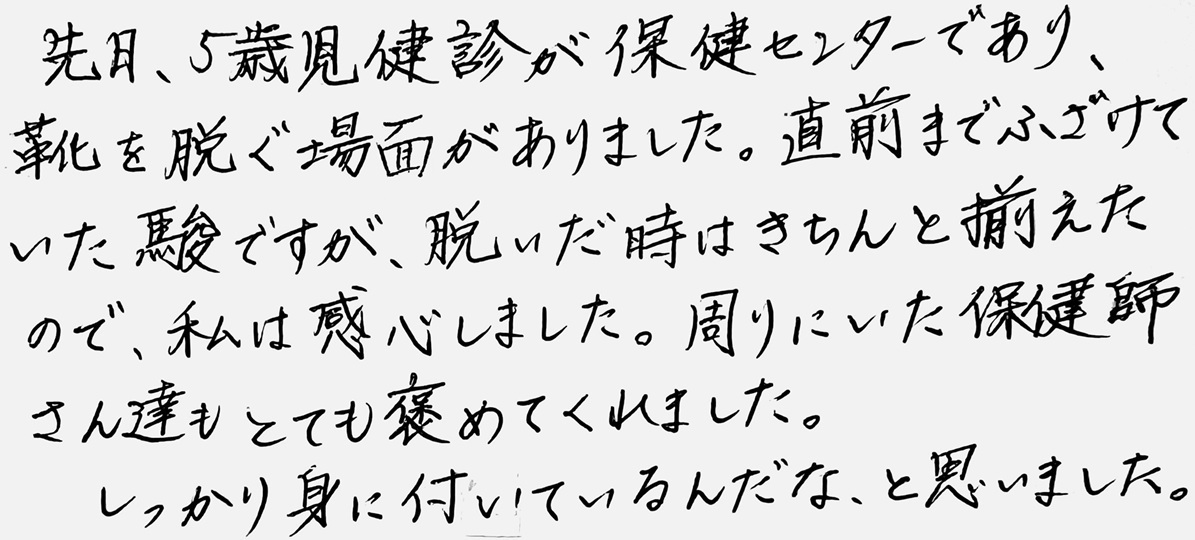 先日、5歳児健診が保健センターであり、
靴を脱ぐ場面がありました。直前までふざけて
いた駿ですが、脱いだ時はきちんと揃えた
ので、私は感心しました。周りにいた保健師
さん達もとても褒めてくれました。
しっかり身に付いているんだな、と思いました。